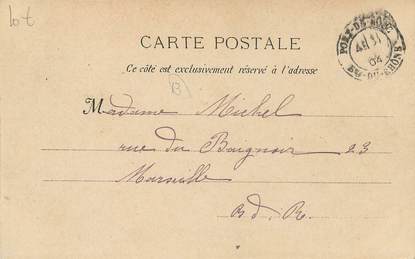 lot
CARTE POSTALE
Ce côté est exclusivement réservé à l'adresse
B
Madame Michel
rue du Baignoir 23
Marseille
B. d. R.
PORT-DE-BOUC
04
BCHES-DU-RHÔNE